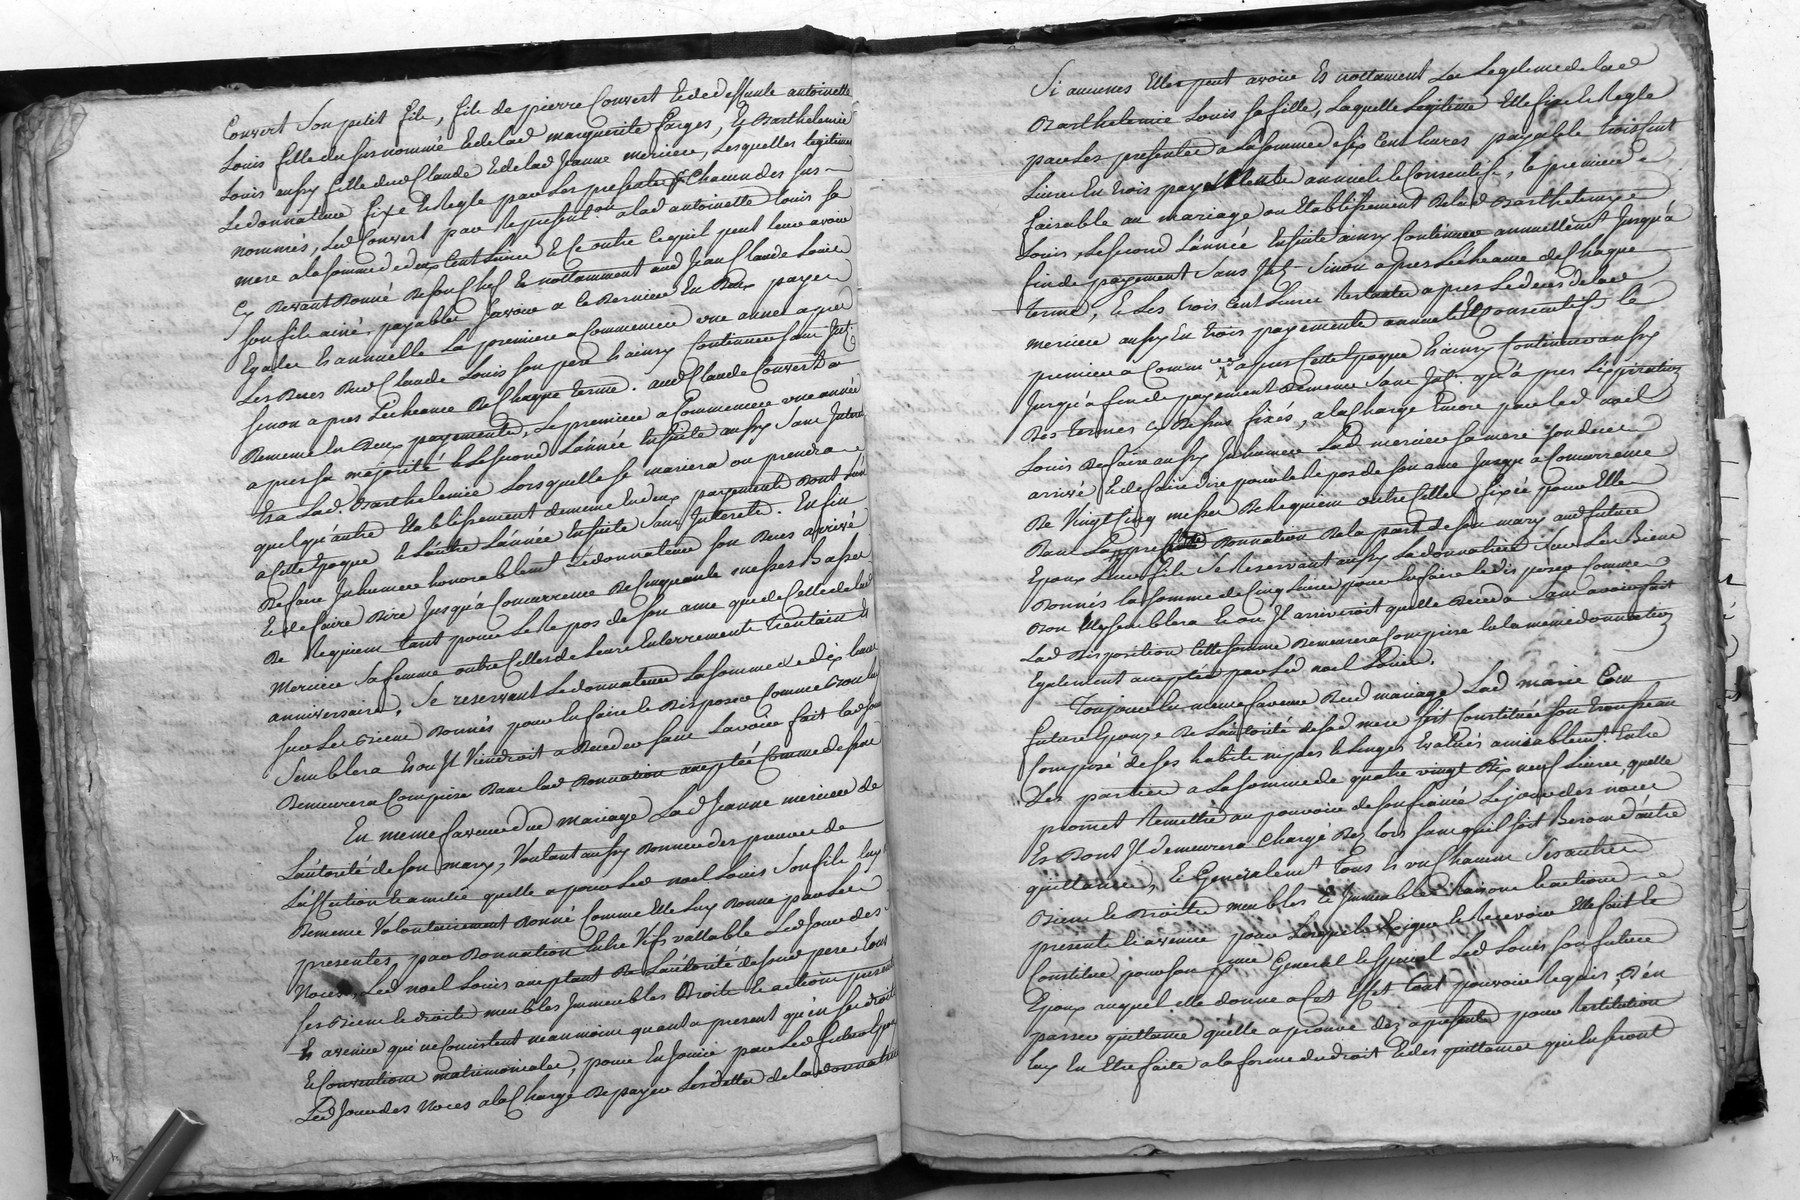 Convert son petit fils, fils de pierre Convert Et de deffunte antoinette
Louis fille du susnommé Et de lad marguerite farges, Et Barthelemie
Louis aussy fille dud Claude Et de lad Jeanne merciere, Lesquelles legitimes
Le donnateur fixe Et Regle par Les presentes Chacun des sus
nommés, Led Convert par Representon a lad antoinette Louis sa
mere a la somme de deux Cent Livres Et Ce outre Ce quil peut leur avoir
Cy devant donné de son Chef Et nottamment aud Jean Claude Louis
son fils ainé, payables scavoir a Ce dernier En deux payes
Egales Et annuelle La premiere a Commencer une année apres
Les deces dud Claude Louis son pere Et ainsy Continuer sans Int
sinon apres L'écheance de Chaque terme. aud Claude Convert
de meme En deux payements, Le premier a Commencer une année
apres sa majorité Et Le second L'année Ensuite aussy sans Interet
Et a Lad. Barthelemie Lors quelle se mariera ou prendra
quelqu'autre Etablissement de meme En deux payements dont l'un
a Cette Epoque Et L'autre L'année Ensuite sans Interets. En fin
de faire Inhumer honorablement Le donnateur son deces arrivé
Et de faire dire Jusqu'a Concurrence de Cinquante messes Basses
de Requiem tant pour Le Repos de son ame que de Celle de lad
Merciere sa femme outre Celles de Leurs Enterrements trentain Et
anniversaires, Se reservant Le donnateur La somme de dix Livres
sur Les Biens donnés pour En faire Et disposer Comme Bon luy
semblera Et ou Il Viendroit a deceder sans L'avoir fait lad somme
demeurera Comprise dans lad donnation acceptée Comme dessus
En meme faveur dud mariage Lad Jeanne merciere de
L'autorité de son mary, Voulant aussy donner des preuves de
L'affection Et amitié quelle a pour Led noel Louis son fils luy
de meme Volontairement donné Comme Elle luy donne par Les
presentes, par donnation Entre Vifs vallable Led Jour des
Noces, Led noel Louis acceptant de L'autorité de sond pere, tous
ses Biens Et droits meubles Immeubles droits Et actions presents
Et avenir qui ne Consistent neanmoins quant a present qu'en ses droits
Et Conventions matrimoniales, pour En Jouir par Led futur Epoux
Led Jour des Noces a la Charge de payer Les dettes de la donnatrice
Si aucunes Elle peut avoir Et nottament La Legitime de lad
Barthelemie Louis sa fille, Laquelle Legitime Elle fixe Et Regle
par Les presentes a La somme de six Cent Livres payable trois Cent
Livres En trois payements annuels Et Consecutifs, le premier
faisable au mariage ou Etablissement de lad Barthelemie
Louis, Le second L'année Ensuite ainsy Continuer annuellement Jusqu'a
fin de payement sans Int sinon apres L'écheance de Chaque
terme, Et Les trois Cent Livres Restantes apres Le deces de lad
merciere aussy En trois payements annuels Et Consecutifs Le
premier a Commencer apres Cette Epoque Et ainsy Continuer aussy
Jusqu'a fin de payement de meme sans Int. qu'a pres L'Expiration
des termes Cy dessus fixés, a la Charge Encore par led noel
Louis de faire aussy Inhumer Lad merciere sa mere son deces
arrivé Et de faire dire pour le Repos de son ame Jusqu'a Concurrence
de Vingt Cinq messes de Requiem outre Celles fixées pour Elle
dans La presente donnation de la part de son mary aud futur
Epoux Leur fils Se Reservant aussy La donnatrice sur Ses Biens
donnés la somme de Cinq Livres pour En faire Et disposer Comme
Bon Elle semblera Et ou Il arriveroit quelle deceda sans avoir fait
Lad disposition Cette somme demeurera Comprise En la meme donnation
Egalement acceptée par Led noel Louis.
Toujours En meme faveur dud mariage Lad marie Com
future Epouze de L'autorité de sad mere s'est Constituée son trousseau
Composé de ses habits nippes Et Linges Evalués amiablement Entre
Les parties a La somme de quatre vingt dix neuf Livres, quelle
promet Remettre au pouvoir de son fiancé Le jour des noces
Et dont Il demeurera Chargé des lors sans quil soit Besoin d'autre
quittance, Et Generalement tous Et un Chacun Ses autres
Biens Et droits meubles Et Immeubles Raisons Et actions
presents Et avenir pour Lesquels Exiger Et Recevoir Elle fait Et
Constitue pour son procureur General Et special Led Louis son futur
Epoux auquel elle donne a Cet Effet tout pouvoir Requis, d'en
passer quittance qu'elle aprouve dez apresent pour Restitution
luy En Etre faite a la forme du droit Et des quittances qui En seront